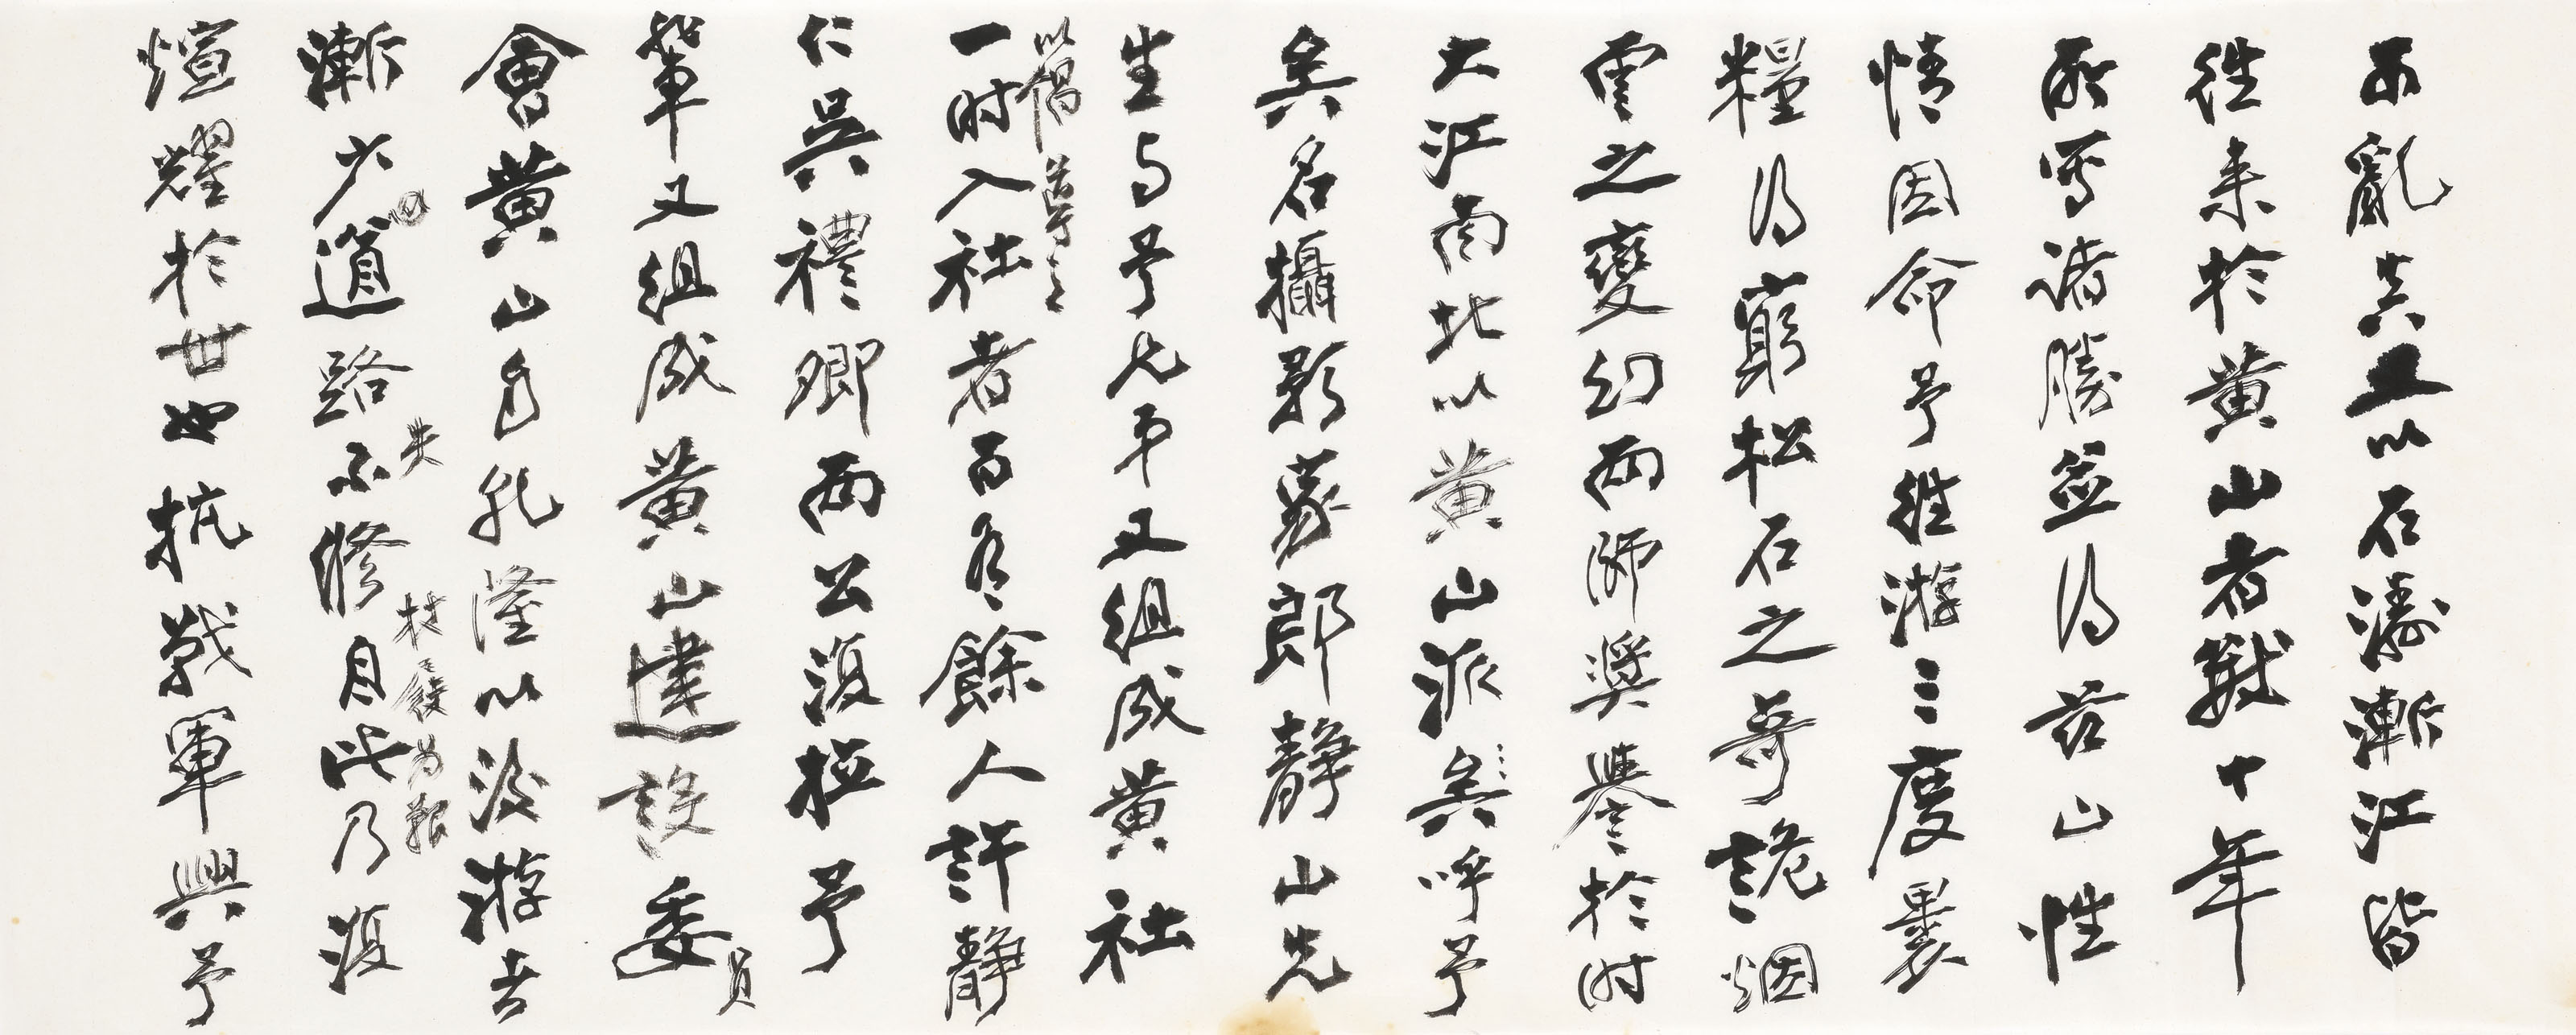 不亂真又以石濤漸江皆
往來於黃山者數十年
所寫諸勝並得茲山性
情因命予往游三度裹
糧得窮松石之奇詭烟
雲之變幻兩師獎譽於時
大江南北以黃山派矣呼予
矣名攝影家郎靜山先
生与予兄弟又組成黃社
以倡導之
一時入社者百有餘人許靜
仁吳禮卿兩公復拉予
輩又組成黃山建設委員
會黃山自以後游者
漸少道路不修自此乃復
失
為艱
煊耀於世也抗戰軍興予